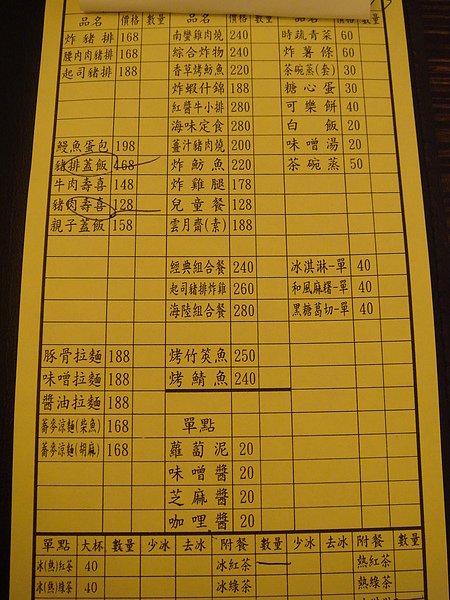 品名 價格 數量 品名 價格 數量 品名 價格 數量
炸豬排 168 南蠻雞肉燒 240 時蔬青菜 60
腰內肉豬排 168 綜合炸物 240 炸薯條 60
起司豬排 188 香草烤魴魚 220 茶碗蒸(套) 30
炸蝦什錦 188 糖心蛋 30
紅醬牛小排 280 可樂餅 40
海味定食 280 白飯 20
鰻魚蛋包 198 薑汁豬肉燒 200 味噌湯 20
豬排蓋飯 168 炸魴魚 220 茶碗蒸 50
牛肉壽喜 148 炸雞腿 178
豬肉壽喜 128 兒童餐 128
親子蓋飯 158 雲月齋(素) 188
經典組合餐 240 冰淇淋-單 40
起司豬排炸雞 260 和風麻糬-單 40
海陸組合餐 280 黑糖葛切-單 40
豚骨拉麵 188 烤竹筴魚 250
味噌拉麵 188 烤鯖魚 240
醬油拉麵 188
蕎麥涼麵(柴魚) 168 單點
蕎麥涼麵(胡麻) 168 蘿蔔泥 20
味噌醬 20
芝麻醬 20
咖哩醬 20
單點 大杯 數量 少冰 去冰 附餐 數量 少冰 去冰 附餐 數量
冰(熱)紅茶 40 冰紅茶 熱紅茶
冰(熱)綠茶 40 冰綠茶 熱綠茶